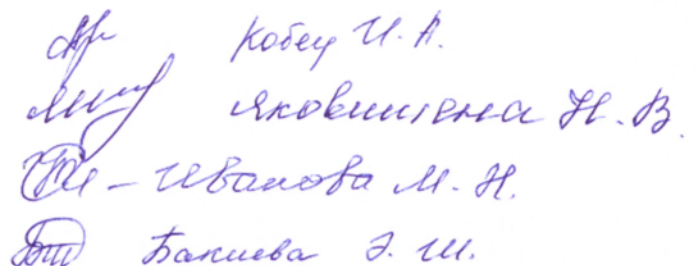 Кобец И. А.
Яковишена Н. В.
Иванова М. Н.
Бакиева Э. Ш.